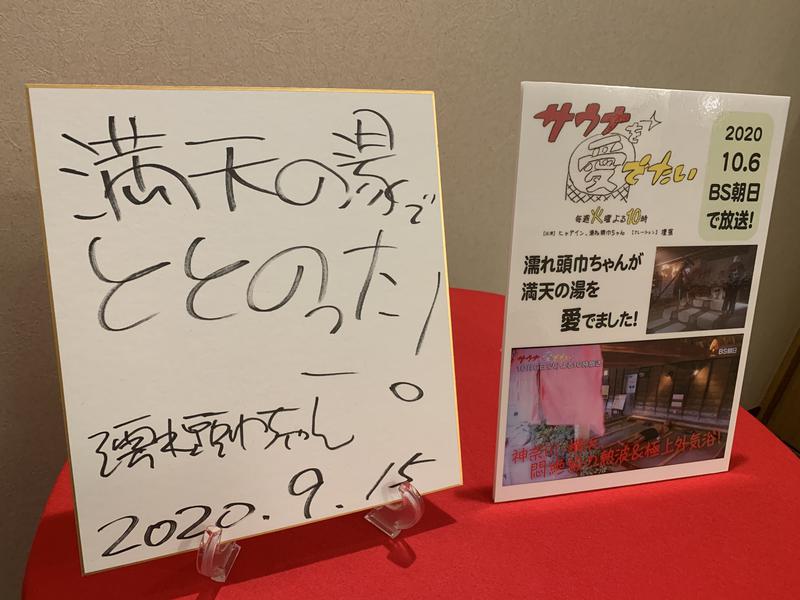 満天の湯で
ととのった!
ー。
濡れ頭巾ちゃん
2020.9.15
サウナを
愛でたい
毎週火曜よる10時
2020
10.6
BS朝日
で放送!
濡れ頭巾ちゃんが
満天の湯を
愛でました!
サウナを愛でたい
BS朝日
神奈川・横浜
悶絶級の熱波&極上外気浴!